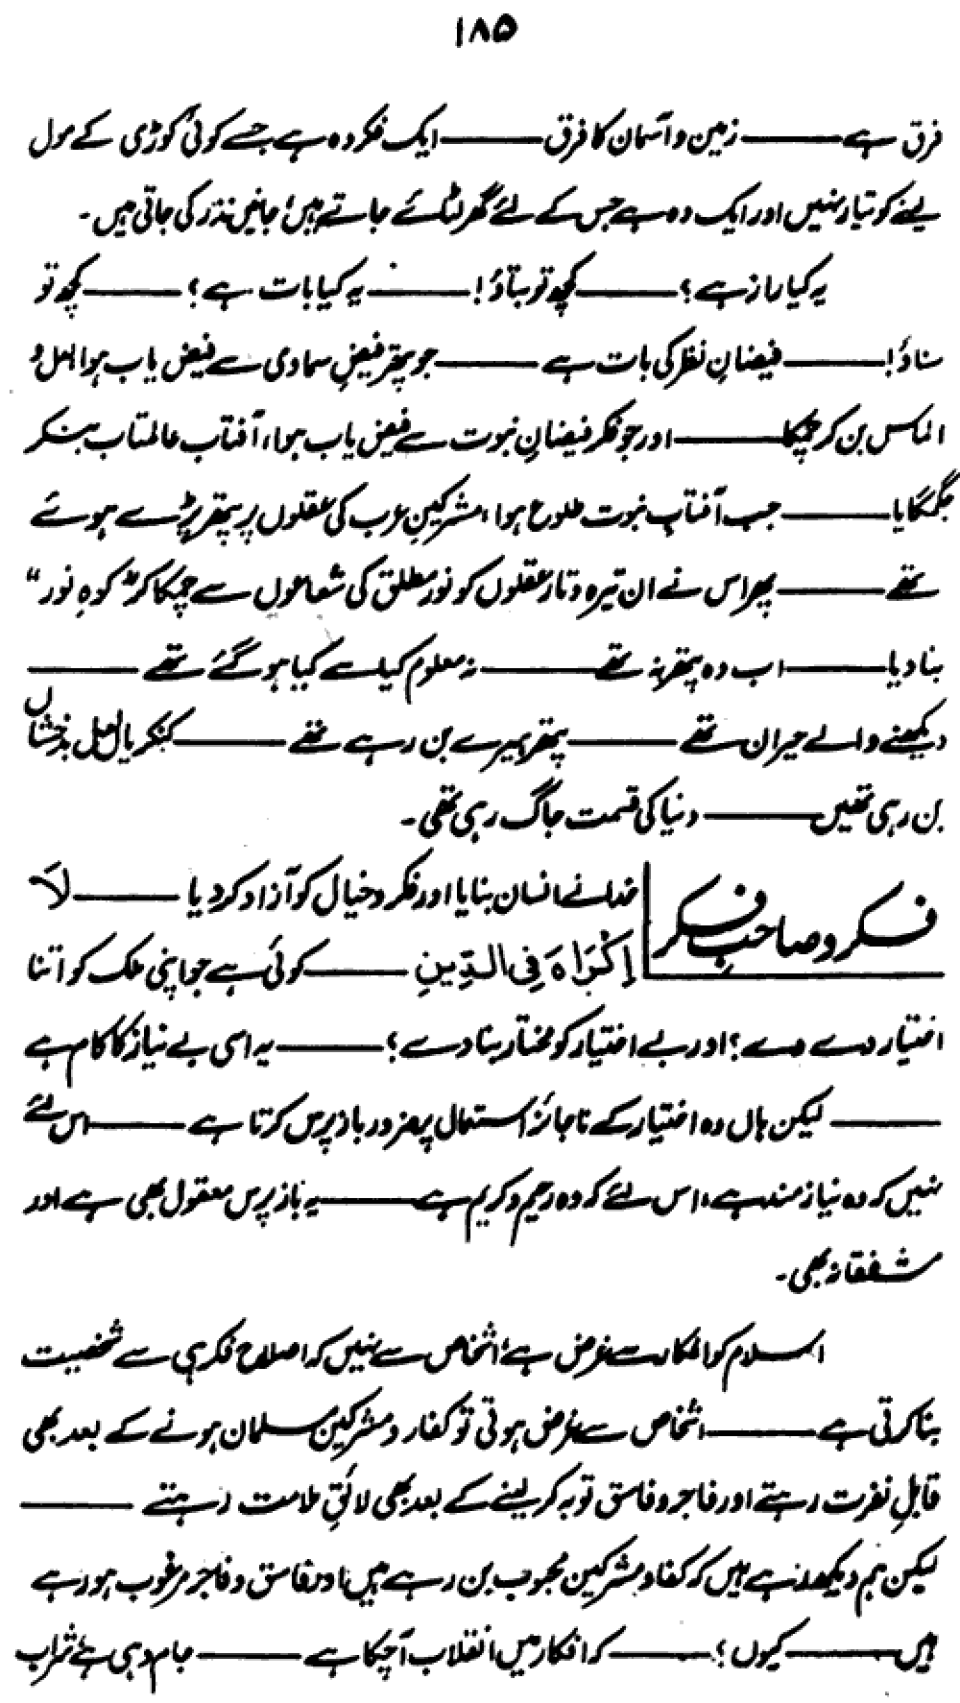 ۱۸۵
فرق ہے ——— زمین و آسمان کا فرق ——— ایک فکر وہ ہے جسے کوئی کوڑی کے مول
لینے کو تیار نہیں اور ایک وہ ہے جس کے لئے گھر لٹائے جاتے ہیں، جانیں نذر کی جاتی ہیں۔
یہ کیا راز ہے؟ ——— کچھ تو بتاؤ! ——— یہ کیا بات ہے؟ ——— کچھ تو
سناؤ! ——— فیضانِ نظر کی بات ہے ——— جو پتھر فیضِ سماوی سے فیض یاب ہوا لعل و
الماس بن کر چمکا ——— اور جو فکر فیضانِ نبوت سے فیض یاب ہوا، آفتاب عالمتاب بنکر
جگمگایا ——— جب آفتابِ نبوت طلوع ہوا، مشرکینِ عرب کی عقلوں پر پتھر پڑے ہوئے
تھے ——— پھر اس نے ان تیرہ و تار عقلوں کو نورِ مطلق کی شعاعوں سے چمکا کر "کوہِ نور"
بنا دیا ——— اب وہ پتھر نہ تھے ——— نہ معلوم کیا سے کیا ہو گئے تھے ———
دیکھنے والے حیران تھے ——— پتھر ہیرے بن رہے تھے ——— کنکریاں لعل بدخشاں
بن رہی تھیں ——— دنیا کی قسمت جاگ رہی تھی۔
فکر و صاحبِ فکر
خدا نے انسان بنایا اور فکر و خیال کو آزاد کر دیا ——— لَا
اِکْرَاہَ فِی الدِّیْنِ ——— کوئی ہے جو اپنی ملک کو اتنا
اختیار دے دے؟ اور بے اختیار کو مختار بنا دے؟ ——— یہ اسی بے نیاز کا کام ہے
——— لیکن ہاں وہ اختیار کے ناجائز استعمال پر ضرور باز پرس کرتا ہے ——— اس لئے
نہیں کہ وہ نیاز مند ہے، اس لئے کہ وہ رحیم و کریم ہے ——— یہ باز پرس معقول بھی ہے اور
مشفقانہ بھی۔
اسلام کو افکار سے غرض ہے، اشخاص سے نہیں کہ اصلاح فکر ہی سے شخصیت
بنا کرتی ہے ——— اشخاص سے غرض ہوتی تو کفار و مشرکین مسلمان ہونے کے بعد بھی
قابلِ نفرت رہتے اور فاجر و فاسق توبہ کر لینے کے بعد بھی لائقِ ملامت رہتے ———
لیکن ہم دیکھ رہے ہیں کہ کفار و مشرکین محبوب بن رہے ہیں اور فاسق و فاجر مرغوب ہو رہے
ہیں ——— کیوں؟ ——— کہ افکار میں انقلاب آچکا ہے ——— جام وہی ہے شراب